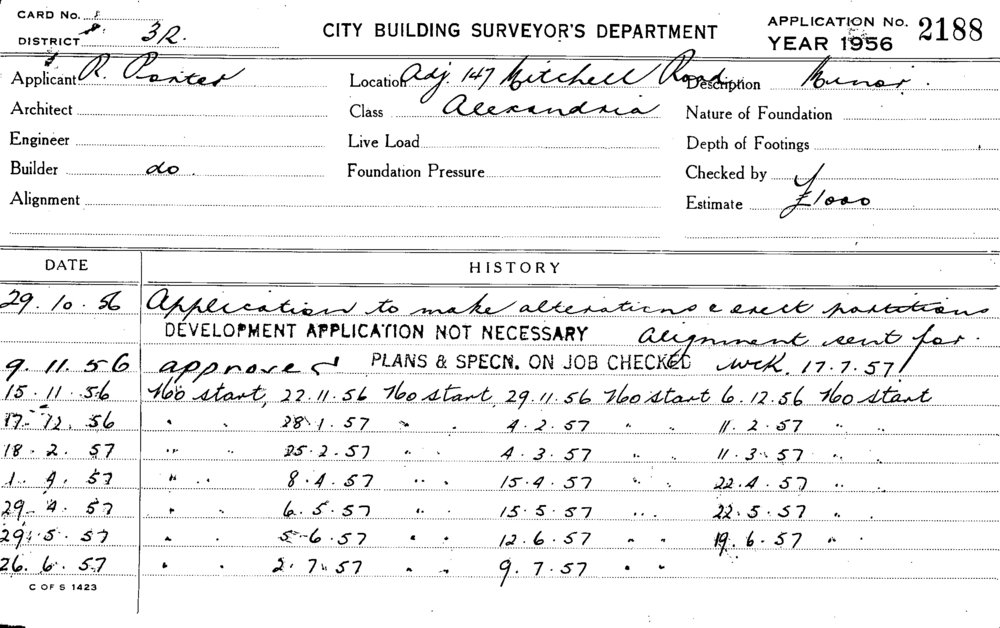 CARD No.
DISTRICT 3R.
CITY BUILDING SURVEYOR'S DEPARTMENT
APPLICATION No. 2188
YEAR 1956
Applicant R. Porter
Location Adj. 147 Mitchell Road
Description Minor.
Architect
Class Alexandria
Nature of Foundation
Engineer
Live Load
Depth of Footings
Builder do.
Foundation Pressure
Checked by
Alignment
Estimate £1000
DATE HISTORY
29.10.56 Application to make alterations & erect partitions
DEVELOPMENT APPLICATION NOT NECESSARY Alignment sent for.
9.11.56 approved PLANS & SPECN. ON JOB CHECKED 17.7.57
15.11.56 No start, 22.11.56 No start, 29.11.56 No start 6.12.56 No start
17.12.56 " " 28.1.57 " " 4.2.57 " " 11.2.57 " "
18.2.57 " " 25.2.57 " " 4.3.57 " " 11.3.57 " "
1.4.57 " " 8.4.57 " " 15.4.57 " " 22.4.57 " "
29.4.57 " " 6.5.57 " " 15.5.57 " " 22.5.57 " "
29.5.57 " " 5.6.57 " " 12.6.57 " " 19.6.57 " "
26.6.57 " " 2.7.57 " " 9.7.57 " "
C OF S 1423